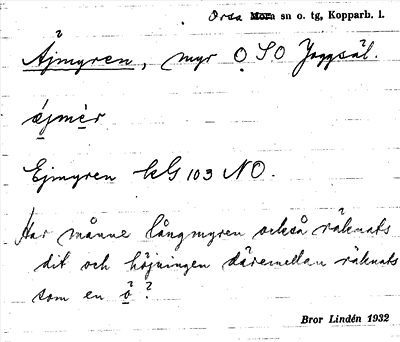 Orsa Mora sn o. tg, Kopparb. l.
Äjmyren, myr O SO Joggsäl.
ä́jmèr
Ejmyren kG 103 NO.
Har månne långmyren också räknats
dit och höjningen däremellan räknats
som en ö?
Bror Lindén 1932